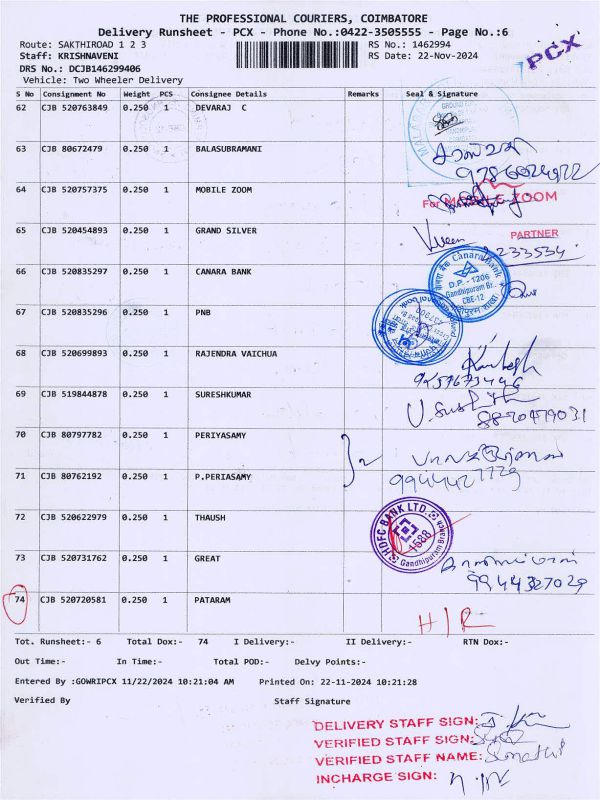 THE PROFESSIONAL COURIERS, COIMBATORE
Delivery Runsheet - PCX - Phone No.:0422-3505555 - Page No.:6
Route: SAKTHIROAD 1 2 3 RS No.: 1462994
Staff: KRISHNAVENI RS Date: 22-Nov-2024
PCX
DRS No.: DCJB146299406
Vehicle: Two Wheeler Delivery
S No Consignment No Weight PCS Consignee Details Remarks Seal & Signature
62 CJB 520763849 0.250 1 DEVARAJ C
63 CJB 80672479 0.250 1 BALASUBRAMANI
64 CJB 520757375 0.250 1 MOBILE ZOOM For MOBILE ZOOM
65 CJB 520454893 0.250 1 GRAND SILVER PARTNER
233534
66 CJB 520835297 0.250 1 CANARA BANK Canara Bank D.P. - 1206 Gandhipuram Br. CBE-12
67 CJB 520835296 0.250 1 PNB
68 CJB 520699893 0.250 1 RAJENDRA VAICHUA
69 CJB 519844878 0.250 1 SURESHKUMAR
8870479031
70 CJB 80797782 0.250 1 PERIYASAMY
71 CJB 80762192 0.250 1 P.PERIASAMY 9944427729
72 CJB 520622979 0.250 1 THAUSH HDFC BANK LTD. 1588 Gandhipuram Branch
73 CJB 520731762 0.250 1 GREAT
9944327029
74 CJB 520720581 0.250 1 PATARAM H/R
Tot. Runsheet:- 6 Total Dox:- 74 I Delivery:- II Delivery:- RTN Dox:-
Out Time:- In Time:- Total POD:- Delvy Points:-
Entered By :GOWRIPCX 11/22/2024 10:21:04 AM Printed On: 22-11-2024 10:21:28
Verified By Staff Signature
DELIVERY STAFF SIGN:
VERIFIED STAFF SIGN:
VERIFIED STAFF NAME:
INCHARGE SIGN: